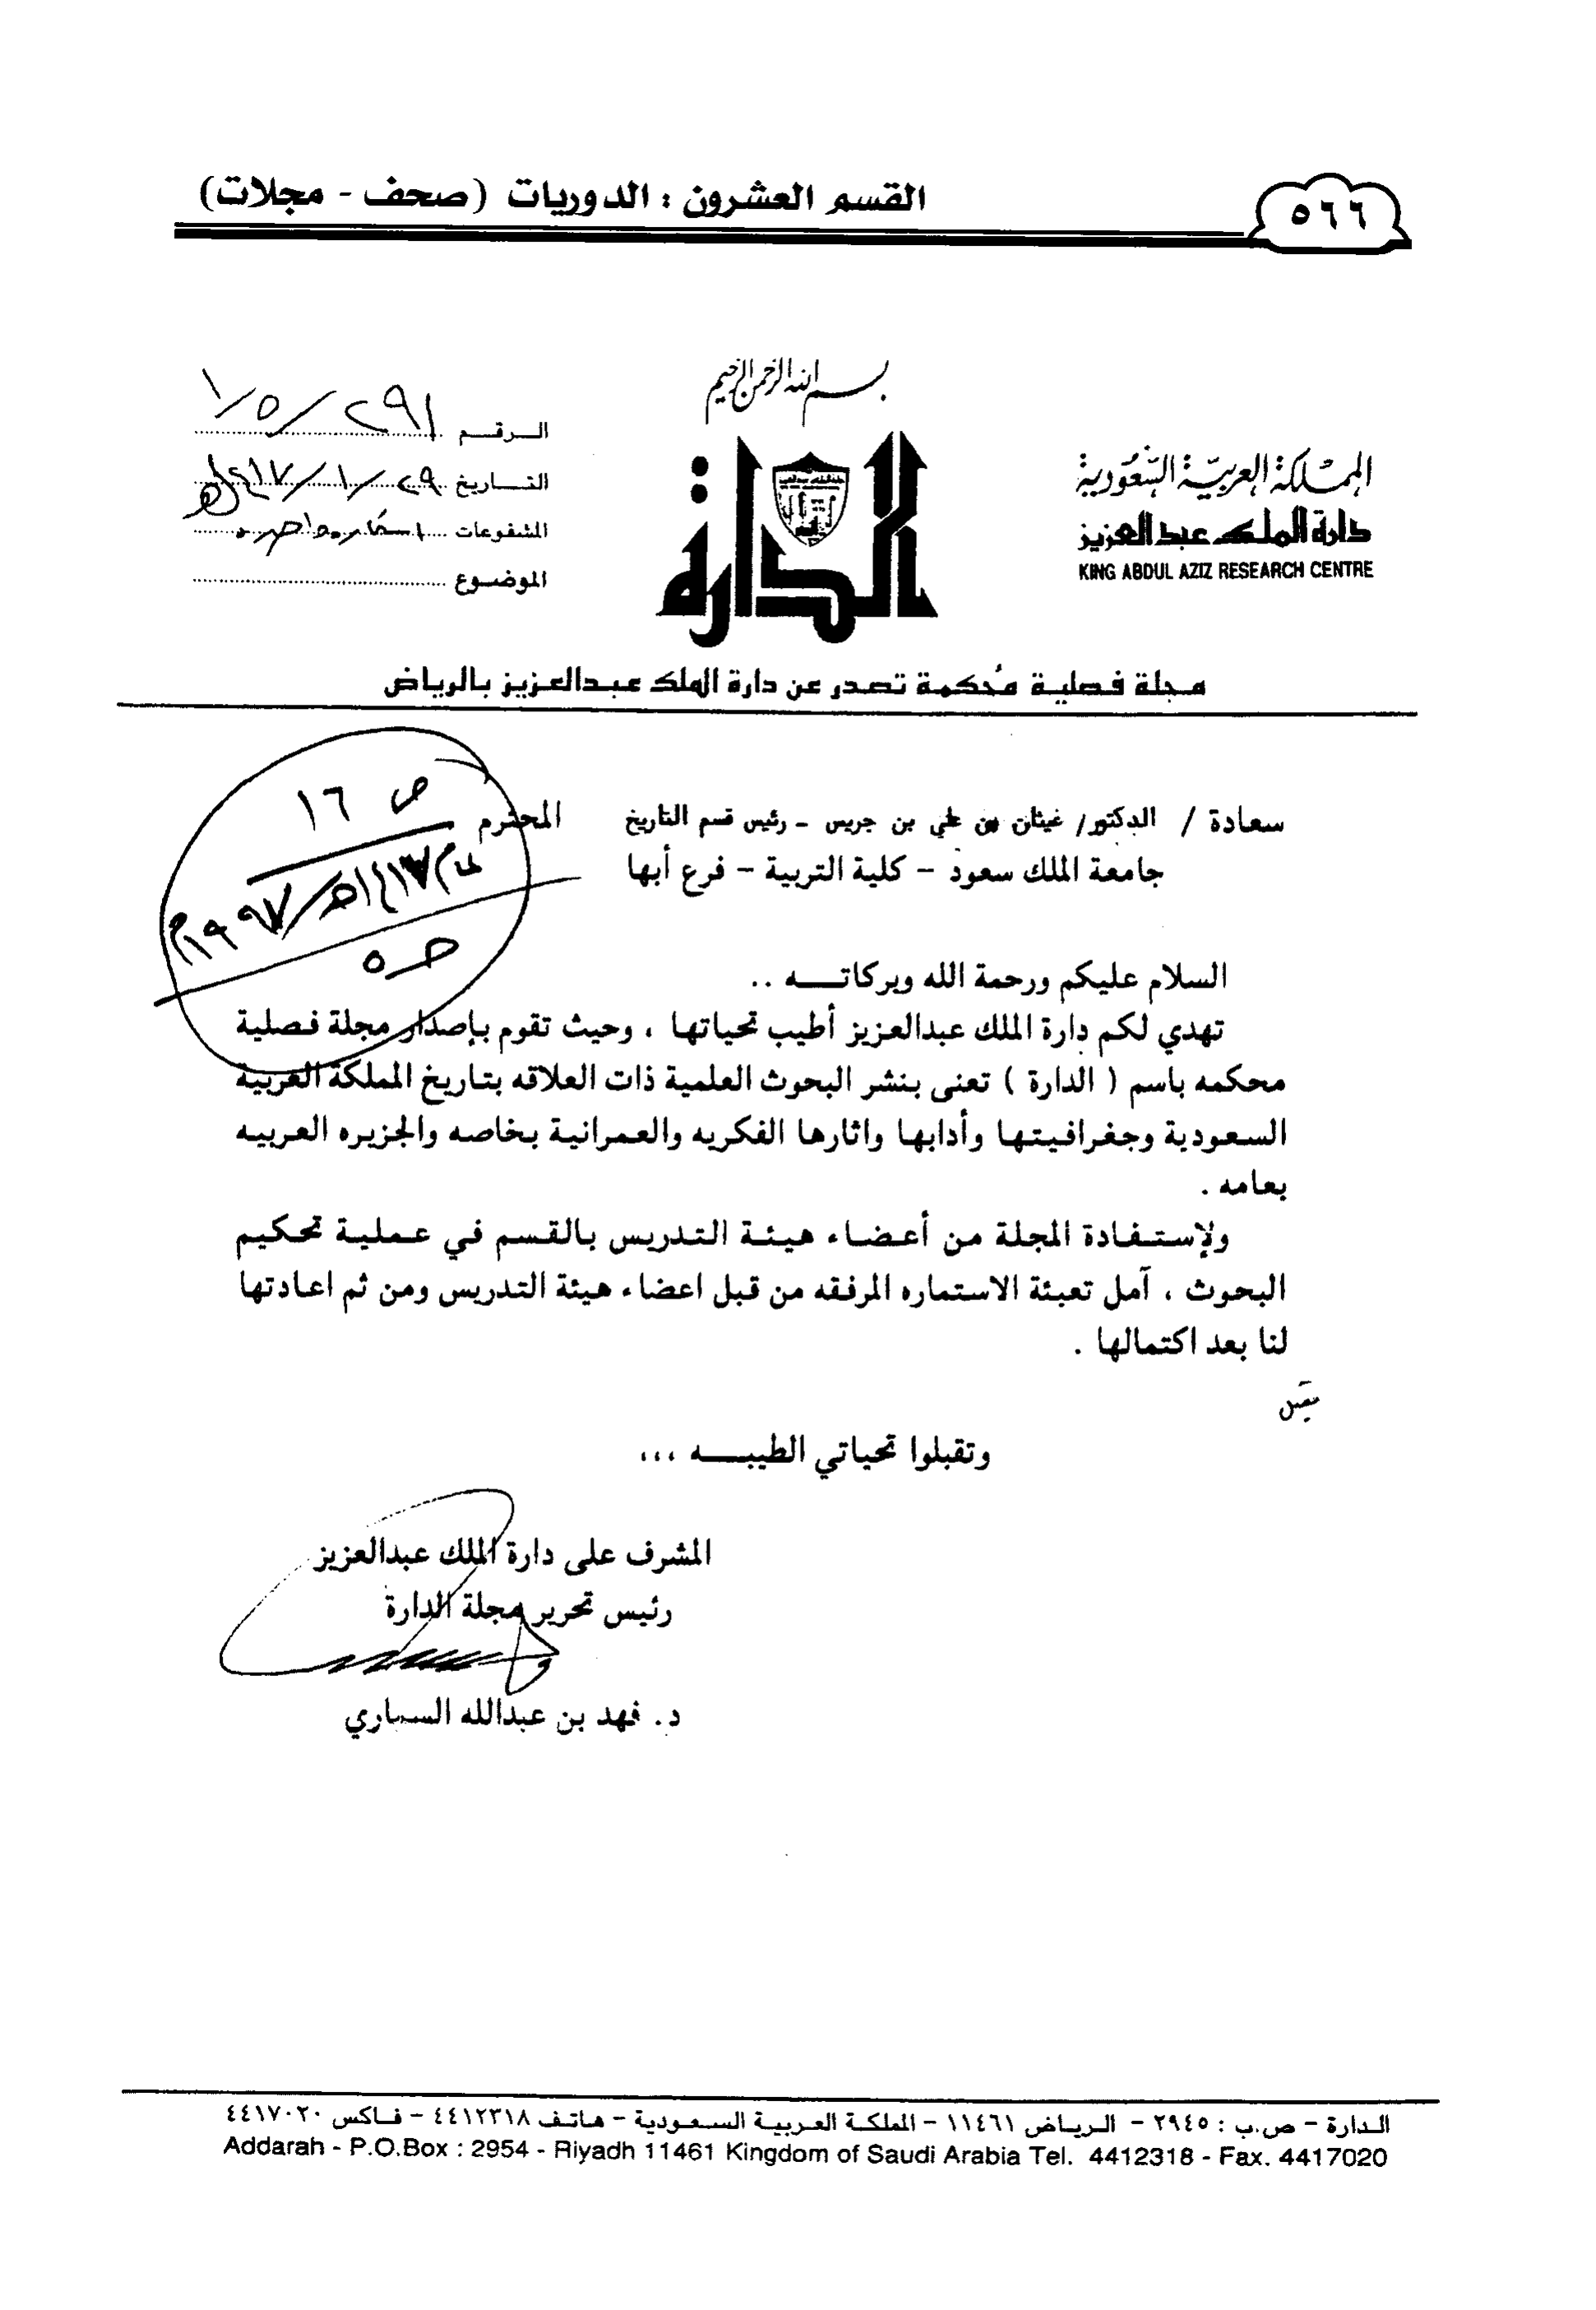 القسم العشرون : الدوريات (صحف - مجلات)
٥٦٦
بسم الله الرحمن الرحيم
المملكة العربية السعودية
دارة الملك عبدالعزيز
KING ABDUL AZIZ RESEARCH CENTRE
الدارة
الرقم ٢٩١/٥/١
التاريخ ٢٩/١/١٤١٧هـ
المشفوعات
الموضوع
مجلة فصلية مُحكمة تصدر عن دارة الملك عبدالعزيز بالرياض
ص ١٦
١٤١٧هـ/١٩٩٧م
سعادة / الدكتور/ غيثان بن علي بن جريس - رئيس قسم التاريخ المحترم
جامعة الملك سعود - كلية التربية - فرع أبها
السلام عليكم ورحمة الله وبركاتـــه ..
تهدي لكم دارة الملك عبدالعزيز أطيب تحياتها ، وحيث تقوم بإصدار مجلة فصلية
محكمه باسم ( الدارة ) تعنى بنشر البحوث العلمية ذات العلاقه بتاريخ المملكة العربية
السعودية وجغرافيتها وأدابها واثارها الفكريه والعمرانية بخاصه والجزيره العربيه
بعامه .
ولإستفادة المجلة من أعضاء هيئة التدريس بالقسم في عملية تحكيم
البحوث ، آمل تعبئة الاستماره المرفقه من قبل اعضاء هيئة التدريس ومن ثم اعادتها
لنا بعد اكتمالها .
وتقبلوا تحياتي الطيبـــه ،،،
المشرف على دارة الملك عبدالعزيز
رئيس تحرير مجلة الدارة
د. فهد بن عبدالله السماري
الدارة - ص.ب : ٢٩٤٥ - الرياض ١١٤٦١ - المملكة العربية السعودية - هاتف ٤٤١٢٣١٨ - فاكس ٤٤١٧٠٢٠
Addarah - P.O.Box : 2954 - Riyadh 11461 Kingdom of Saudi Arabia Tel. 4412318 - Fax. 4417020